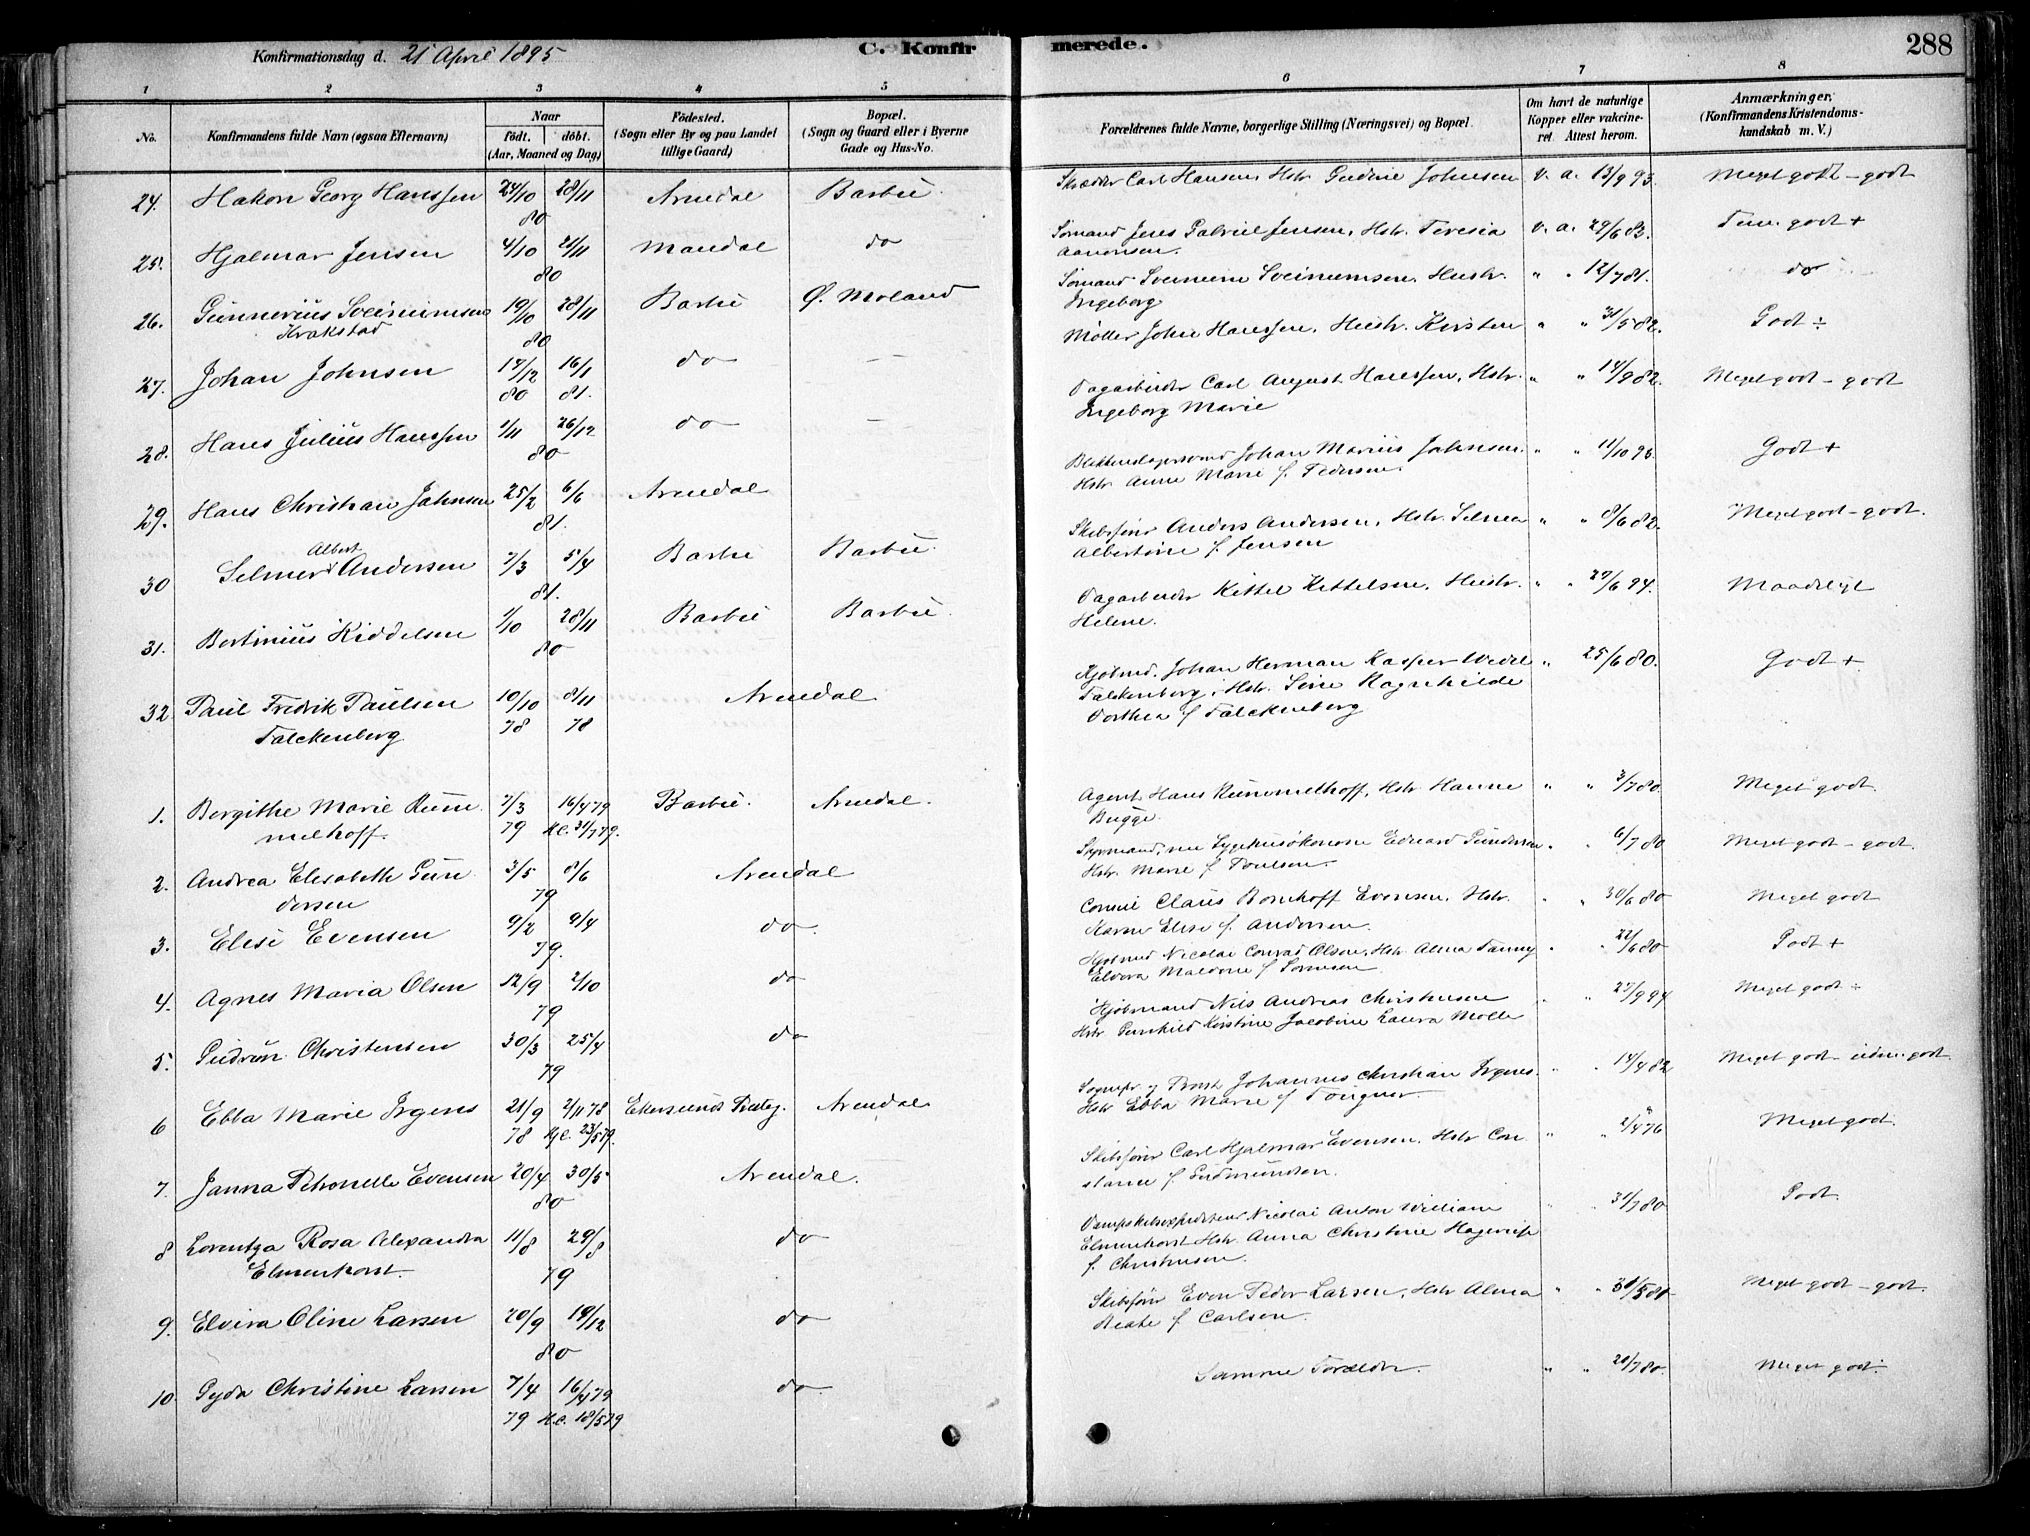 Konfirmationsdag d. 21 April 1895
C. Konfir merede.
288
1 2 3 4 5 6 7 8
No.
Konfirmandens fulde Navn (ogsaa Efternavn)
Naar
födt. döbt.
(Aar, Maaned og Dag)
Födested.
(Sogn eller By og paa Landet
tillige Gaard)
Bopæl.
(Sogn og Gaard eller i Byerne
Gade og Hus-No.
Forældrenes fulde Navne, borgerlige Stilling (Næringsvei) og Bopæl.
Om havt de naturlige
Kopper eller vakcine-
ret Attest herom.
Anmærkninger.
(Konfirmandens Kristendoms-
kundskab m. V.)
24. Hakon Georg Hanssen 24/10 28/11 Arendal Barbu. Skrædder Carl Hansen, Hstr. Gudine Johnsen v. a. 13/9 93. Meget godt - godt
80
25. Hjalmar Jensen 4/10 21/11 Mandal do Sömand Jens Gabriel Jensen, Hstr. Teresia v. a. 29/6 83. Tem. godt +
80 Aanonsen.
26. Gunnerius Sveinumsen 19/10 28/11 Barbu Ø. Moland Sömand Sveinum Sveinumsen, Hustr. " " 12/7 81. do
Krokstad 80 Ingeborg
27. Johan Johnsen 17/12 16/1 do — Møller John Hanssen, Hustr. Kirsten " " 31/5 82. Godt ÷
80 81.
28. Hans Julius Hanssen 1/11 26/12 do — Dagarbeider Carl August Hanssen, Hstr. " " 14/9 82. Meget godt - godt
80 Ingeborg Marie
29. Hans Christian Johnsen 25/2 6/6 Arendal Blikkenslagersvend Johan Marius Johnsen. " " 11/10 93. Godt +
81. Hstr. Anne Marie f. Pedersen.
30 Selmer Albert Andersen 7/3 5/4 Barbu Barbu. Skibsförer Anders Andersen, Hstr. Selmea " " 8/6 82. Meget godt - godt.
81. Albertine f. Jensen
31. Bertinius Kiddelsen 1/10 28/11 Barbu Barbu. Dagarbeider Kittel Kittelsen, Hustr. " " 29/6 94. Maadeligt
80 Helene.
32 Paul Fredrik Paulsen 10/10 8/11 Arendal Kjöbmd. Johan Herman Kasper Wedel " 25/6 80. Godt +
Falckenberg 78 78 Falckenberg, Hstr. Sine Ragnhilde
Dorthea f. Falckenberg
1. Bergithe Marie Rum 7/3 16/4 79 Barbu. Arendal. Agent Hans Rummelhoff, Hstr. Hanne " " 3/7 80 Meget godt.
melhoff. 79 K.c. 31/7 79. Bugge.
2. Andrea Elisabeth Gun 3/5 8/6 Arendal Styrmand, nu Sygehusökonom Eduard Gundersen " " 6/7 80 Meget godt - godt.
dersen 79 Hstr. Marie f. Poulsen.
3. Elise Evensen 9/2 9/4 do. Consul Claus Bomhoff Evensen, Hstr. " " 30/6 80 Meget godt
79. Karen Elise f. Andersen.
4. Agnes Maria Olsen 12/9 2/10 do Nicolai Conrad Olsen, Hstr. Alma Fanny " " 22/6 80 Godt +
79 Elvira Maldvine f.
5. Gudrun Christensen 30/3 25/4 do Kjöbmand Nils Andreas Christensen " " 27/9 94 Meget godt ÷
79 Hstr Gunhild Kirstine Jacobine Laura Molle
6 Ebba Marie Irgens 21/9 2/11 78 Ekersunds Prstg. Arendal Sognepr. og Provst Johannes Christian Irgens. " " 14/4 82 Meget godt - udm. godt
78 Kjc. 23/5 79. Hstr Ebba Marie f. Fougner.
7. Janna Petronelle Evensen 20/4 30/5 Arendal. Skibsförer Carl Hjalmar Evensen, Hstr Con " " Meget godt.
80 stance f. Gudmundsen.
8 Lorentza Rosa Alexandra 11/8 29/8 do Dampskibsexpediteur Nicolai Anton William " " 31/7 80 Godt.
Elmenhorst. 79 Elmenhorst Hstr. Anna Christine
f. Christensen.
9. Elvira Oline Larsen 20/9 19/12 do Skibsförer Even Peder Larsen, Hstr Alma " " 31/5 81 Meget godt - godt.
80 Beate f. Carlsen.
10. Gyda Christine Larsen 7/4 16/4 79 do. Samme Forældre. " " 20/7 80. Meget godt.
79 K.c. 18/5 79